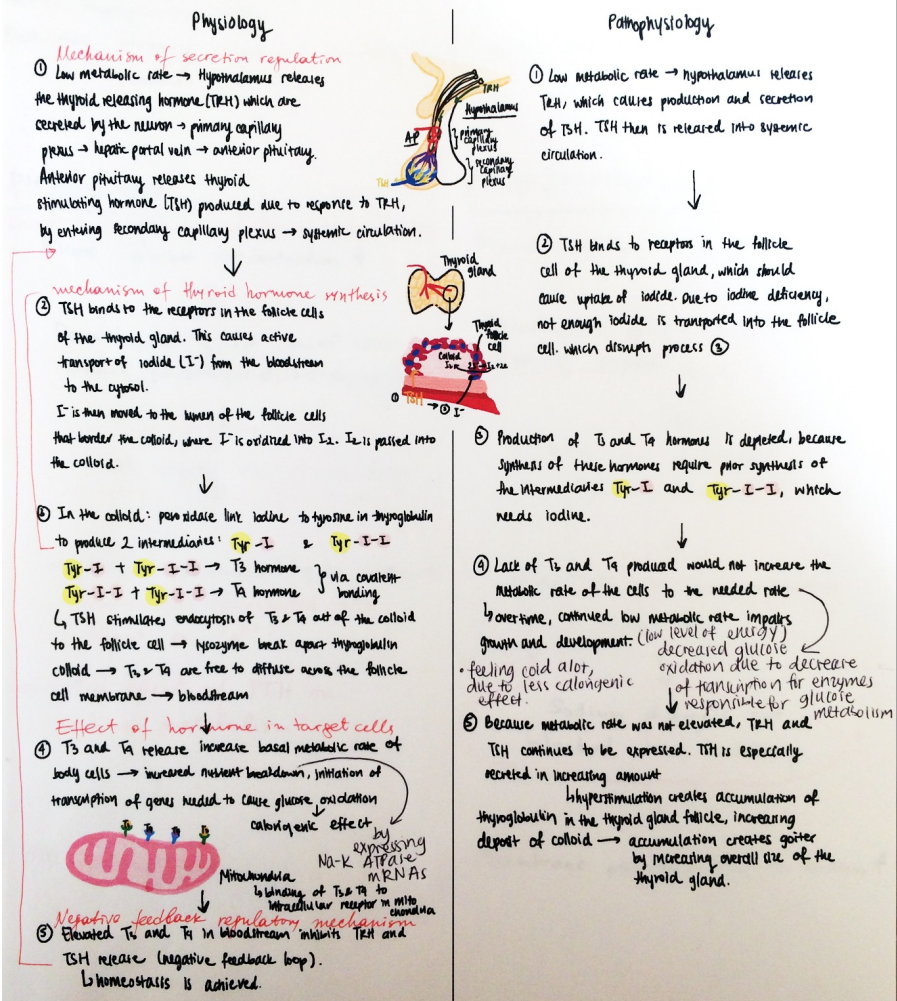 Physiology
Mechanism of secretion regulation
① Low metabolic rate → Hypothalamus releases
the thyroid releasing hormone (TRH) which are
secreted by the neuron → primary capillary
plexus → hepatic portal vein → anterior pituitary.
Anterior pituitary releases thyroid
stimulating hormone (TSH) produced due to response to TRH,
by entering secondary capillary plexus → systemic circulation.
TRH
Hypothalamus
AP
primary
capillary
plexus
secondary
capillary
plexus
TSH
mechanism of thyroid hormone synthesis
② TSH binds to the receptors in the follicle cells
of the thyroid gland. This causes active
transport of iodide (I⁻) from the bloodstream
to the cytosol.
I⁻ is then moved to the lumen of the follicle cells
that border the colloid, where I⁻ is oxidized into I2. I2 is passed into
the colloid.
Thyroid
gland
Thyroid
follicle
cell
Colloid
① TSH → ② I⁻
③ In the colloid: peroxidase link iodine to tyrosine in thyroglobulin
to produce 2 intermediaries: Tyr-I & Tyr-I-I
Tyr-I + Tyr-I-I → T3 hormone
Tyr-I-I + Tyr-I-I → T4 hormone
via covalent
bonding
↳ TSH stimulates endocytosis of T3 & T4 out of the colloid
to the follicle cell → lysozyme break apart thyroglobulin
colloid → T3 & T4 are free to diffuse across the follicle
cell membrane → bloodstream
Effect of hormone in target cells
④ T3 and T4 release increase basal metabolic rate of
body cells → increased nutrient breakdown, initiation of
transcription of genes needed to cause glucose oxidation
calorigenic effect
by
expressing
Na-K ATPase
mRNAs
Mitochondria
↳ binding of T3 & T4 to
intracellular receptor in mito
chondria
Negative feedback regulatory mechanism
⑤ Elevated T3 and T4 in bloodstream inhibits TRH and
TSH release (negative feedback loop).
↳ homeostasis is achieved.
Pathophysiology
① Low metabolic rate → hypothalamus releases
TRH, which causes production and secretion
of TSH. TSH then is released into systemic
circulation.
② TSH binds to receptors in the follicle
cell of the thyroid gland, which should
cause uptake of iodide. Due to iodine deficiency,
not enough iodide is transported into the follicle
cell. which disrupts process ③
③ Production of T3 and T4 hormones is depleted, because
synthesis of these hormones require prior synthesis of
the intermediaries Tyr-I and Tyr-I-I, which
needs iodine.
④ Lack of T3 and T4 produced would not increase the
metabolic rate of the cells to the needed rate
↳ overtime, continued low metabolic rate impairs
growth and development. (low level of energy)
decreased glucose
oxidation due to decrease
of transcription for enzymes
responsible for glucose
metabolism
• feeling cold alot,
due to less calorigenic
effect.
⑤ Because metabolic rate was not elevated, TRH and
TSH continues to be expressed. TSH is especially
secreted in increasing amount
↳ hyperstimulation creates accumulation of
thyroglobulin in the thyroid gland follicle, increasing
deposit of colloid → accumulation creates goiter
by increasing overall size of the
thyroid gland.